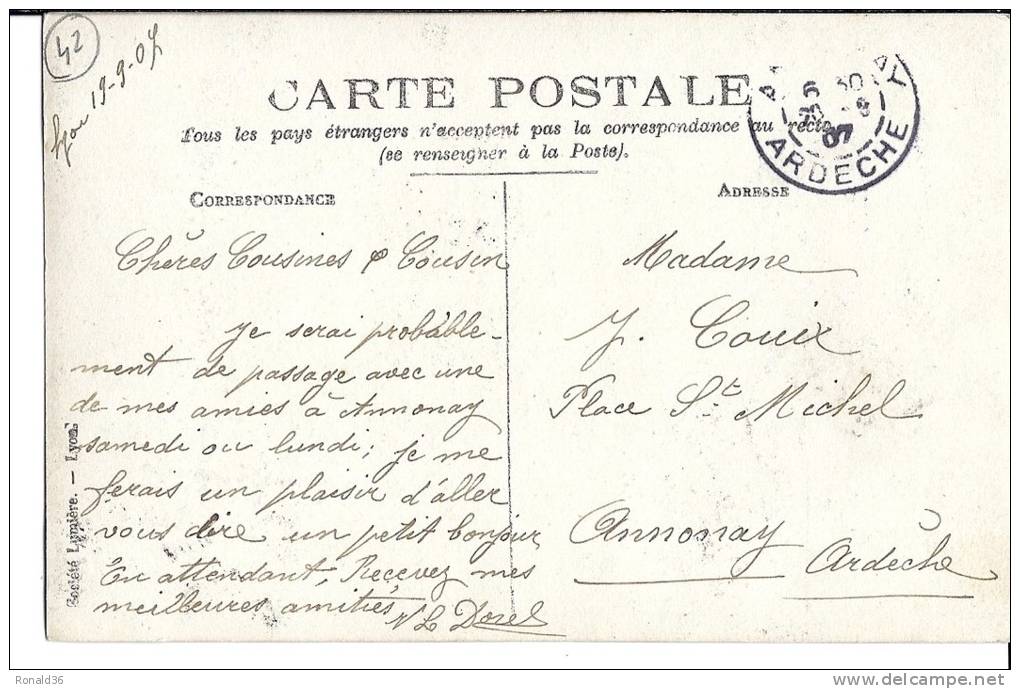 42
Lyon 19-9-07
CARTE POSTALE
Tous les pays étrangers n'acceptent pas la correspondance au recto
(se renseigner à la Poste).
ARDECHE
CORRESPONDANCE
Chères Cousines & Cousin
Je serai probable-
ment de passage avec une
de mes amies à Annonay
samedi ou lundi; je me
ferais un plaisir d'aller
vous dire un petit bonjour
En attendant, Recevez mes
meilleures amitiés
Dorel
ADRESSE
Madame
J. Couix
Place St Michel
Annonay
Ardèche
Société Lumière. — Lyon
Ronald36
delcampe.net